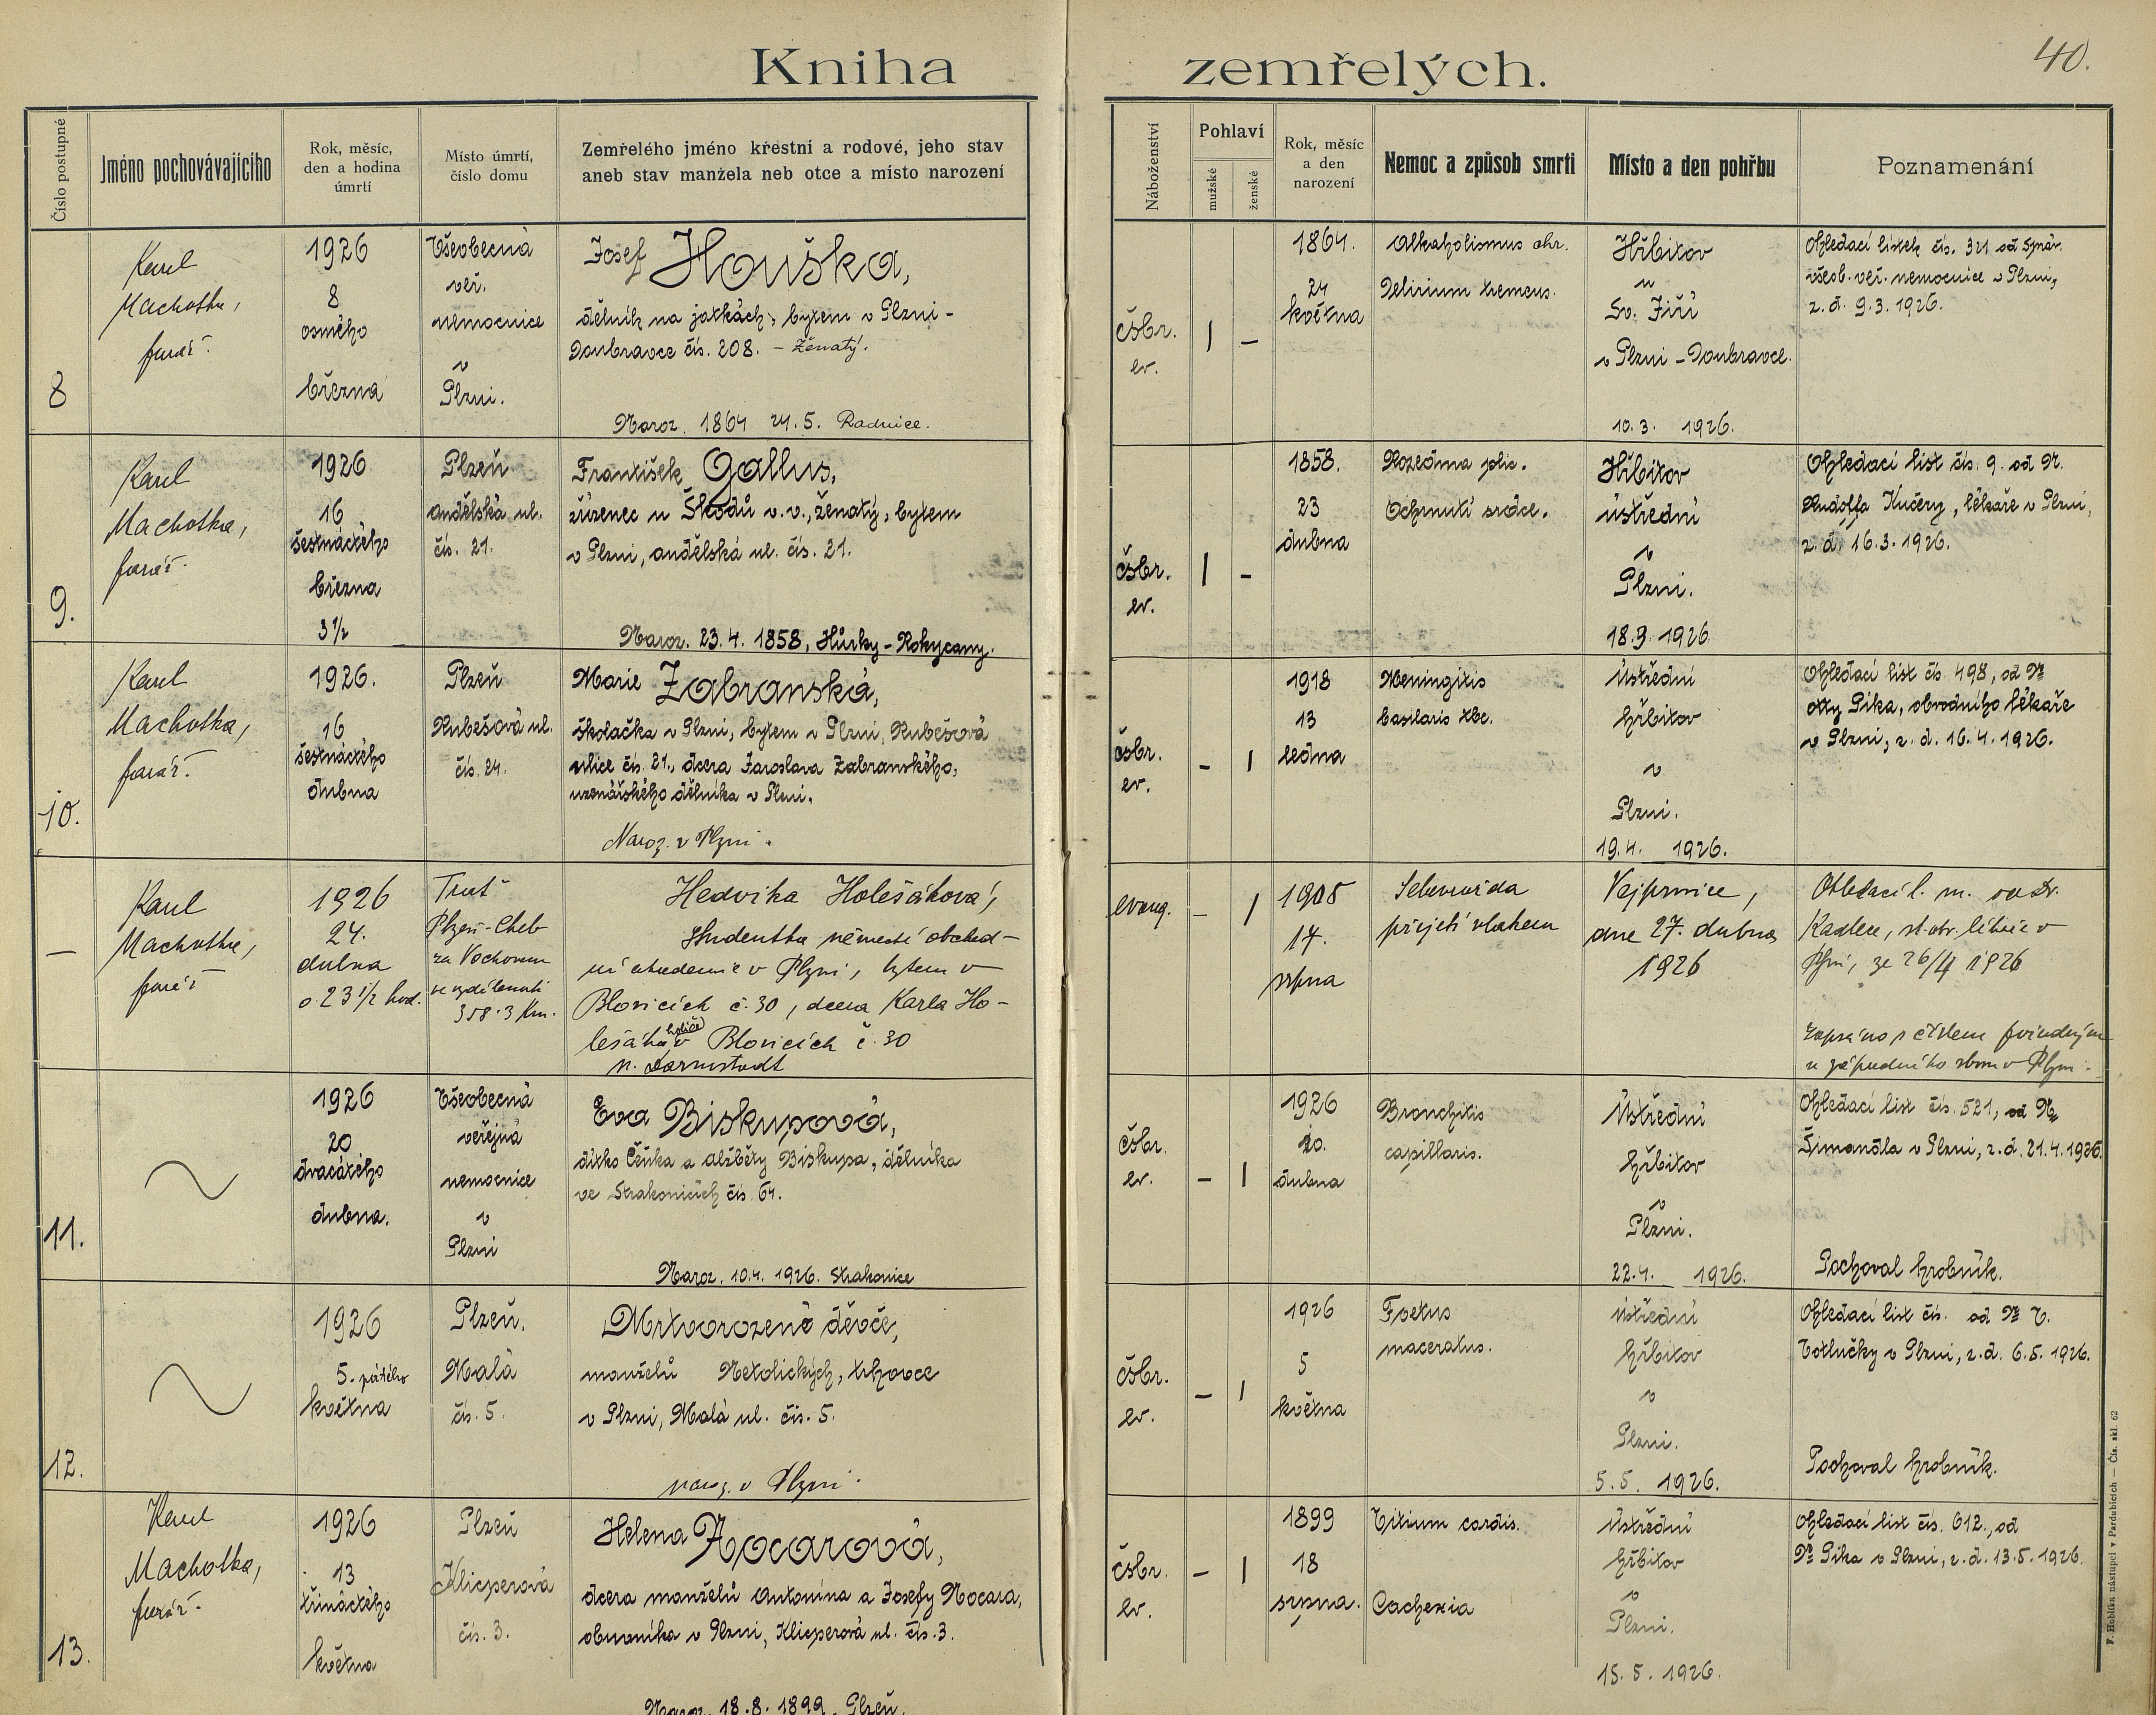 Kniha zemřelých.
40.
Číslo postupné
Jméno pochovávajícího
Rok, měsíc,
den a hodina
úmrtí
Místo úmrtí,
číslo domu
Zemřelého jméno křestní a rodové, jeho stav
aneb stav manžela neb otce a místo narození
Náboženství
Pohlaví
mužské
ženské
Rok, měsíc
a den
narození
Nemoc a způsob smrti
Místo a den pohřbu
Poznamenání
8
Karel
Machotka,
farář.
1926
8
osmého
března
Všeobecná
veř.
nemocnice
v
Plzni.
Josef Houška,
dělník na jatkách, bytem v Plzni-
Doubravce čís. 208. - Ženatý.
Naroz. 1864 24.5. Radnice.
čsbr.
ev.
1
-
1864.
24
května
Alkoholismus chr.
Delirium tremens.
Hřbitov
u
Sv. Jiří
v Plzni-Doubravce.
10.3. 1926.
Ohledací lístek čís. 321 od správ.
všeob. veř. nemocnice v Plzni,
z. d. 9.3.1926.
9.
Karel
Machotka,
farář.
1926
16
šestnáctého
března
3½
Plzeň
andělská ul.
čís. 21.
František Gallus,
zřízenec u Škodů v.v., ženatý, bytem
v Plzni, andělská ul. čís. 21.
Naroz. 23.4. 1858, Hůrky-Rokycany.
čsbr.
ev.
1
-
1858.
23
dubna
Rozedma plic.
Ochrnutí srdce.
Hřbitov
ústřední
v
Plzni.
18.3.1926
Ohledací list čís. 9. od Dr.
Rudolfa Kučery, lékaře v Plzni,
z. d. 16.3.1926.
10.
Karel
Machotka,
farář.
1926.
16
šestnáctého
dubna
Plzeň
Rubešová ul.
čís. 24.
Marie Zabranská,
školačka v Plzni, bytem v Plzni, Rubešová
ulice čís. 21., dcera Jaroslava Zabranského,
uzenářského dělníka v Plzni.
Naroz. v Plzni.
čsbr.
ev.
-
1
1918
13
ledna
Meningitis
basilaris tbc.
Ústřední
hřbitov
v
Plzni.
19.4. 1926.
Ohledací list čís. 498, od Dr
Otty Pika, obvodního lékaře
v Plzni, z. d. 16.4.1926.
-
Karel
Machotka,
farář
1926
24.
dubna
o 23½ hod.
Trať
Plzeň-Cheb
za Vochovem
ve vzdálenosti
358.3 Km.
Hedvika Holešáková,
studentka německé obchod-
ní akademie v Plzni, bytem v
Blovicích č. 30, dcera Karla Ho-
lešáka holiče v Blovicích č. 30
n. Darmstadt
evang.
-
1
1908
17.
srpna
Sebevražda
přejetí vlakem
Vejprnice,
dne 27. dubna
1926
Ohledací l. m. od Dr.
Kadlece, st. obv. lékaře v
Plzni, ze 26/4 1926
zapsáno s číslem pořadným
u západního sboru v Plzni.
11.
1926
20
dvacátého
dubna.
Všeobecná
veřejná
nemocnice
v
Plzni
Eva Biskupová,
dítko Čeňka a Alžběty Biskupa, dělníka
ve Strakonicích čís. 64.
Naroz. 10.4. 1926. Strakonice
čsbr.
ev.
-
1
1926
10.
dubna
Bronchitis
capillaris.
Ústřední
hřbitov
v
Plzni.
22.4. 1926.
Ohledací list čís. 521, od Dr
Šimandla v Plzni, z. d. 21.4.1926.
Pochoval hrobník.
12.
1926
5. pátého
května
Plzeň.
Malá
čís. 5.
Mrtvorozené děvče,
manželů Netolických, trhovce
v Plzni, Malá ul. čís. 5.
naroz. v Plzni.
čsbr.
ev.
-
1
1926
5
května
Foetus
maceratus.
ústřední
hřbitov
v
Plzni.
5.5. 1926.
Ohledací list čís. od Dr V.
Votlučky v Plzni, z. d. 6.5.1926.
Pochoval hrobník.
13.
Karel
Machotka,
farář.
1926
13
třináctého
května
Plzeň
Klicperová
čís. 3.
Helena Nocarová,
dcera manželů Antonína a Josefy Nocara,
obuvníka v Plzni, Klicperová ul. čís. 3.
Naroz. 18.8. 1899. Plzeň.
čsbr.
ev.
-
1
1899
18
srpna.
Vitium cordis.
Cachexia
Ústřední
hřbitov
v
Plzni.
15.5. 1926.
Ohledací list čís. 612., od
Dr Pika v Plzni, z. d. 13.5.1926.
F. Hoblíka nástupci v Pardubicích — Čís. skl. 62